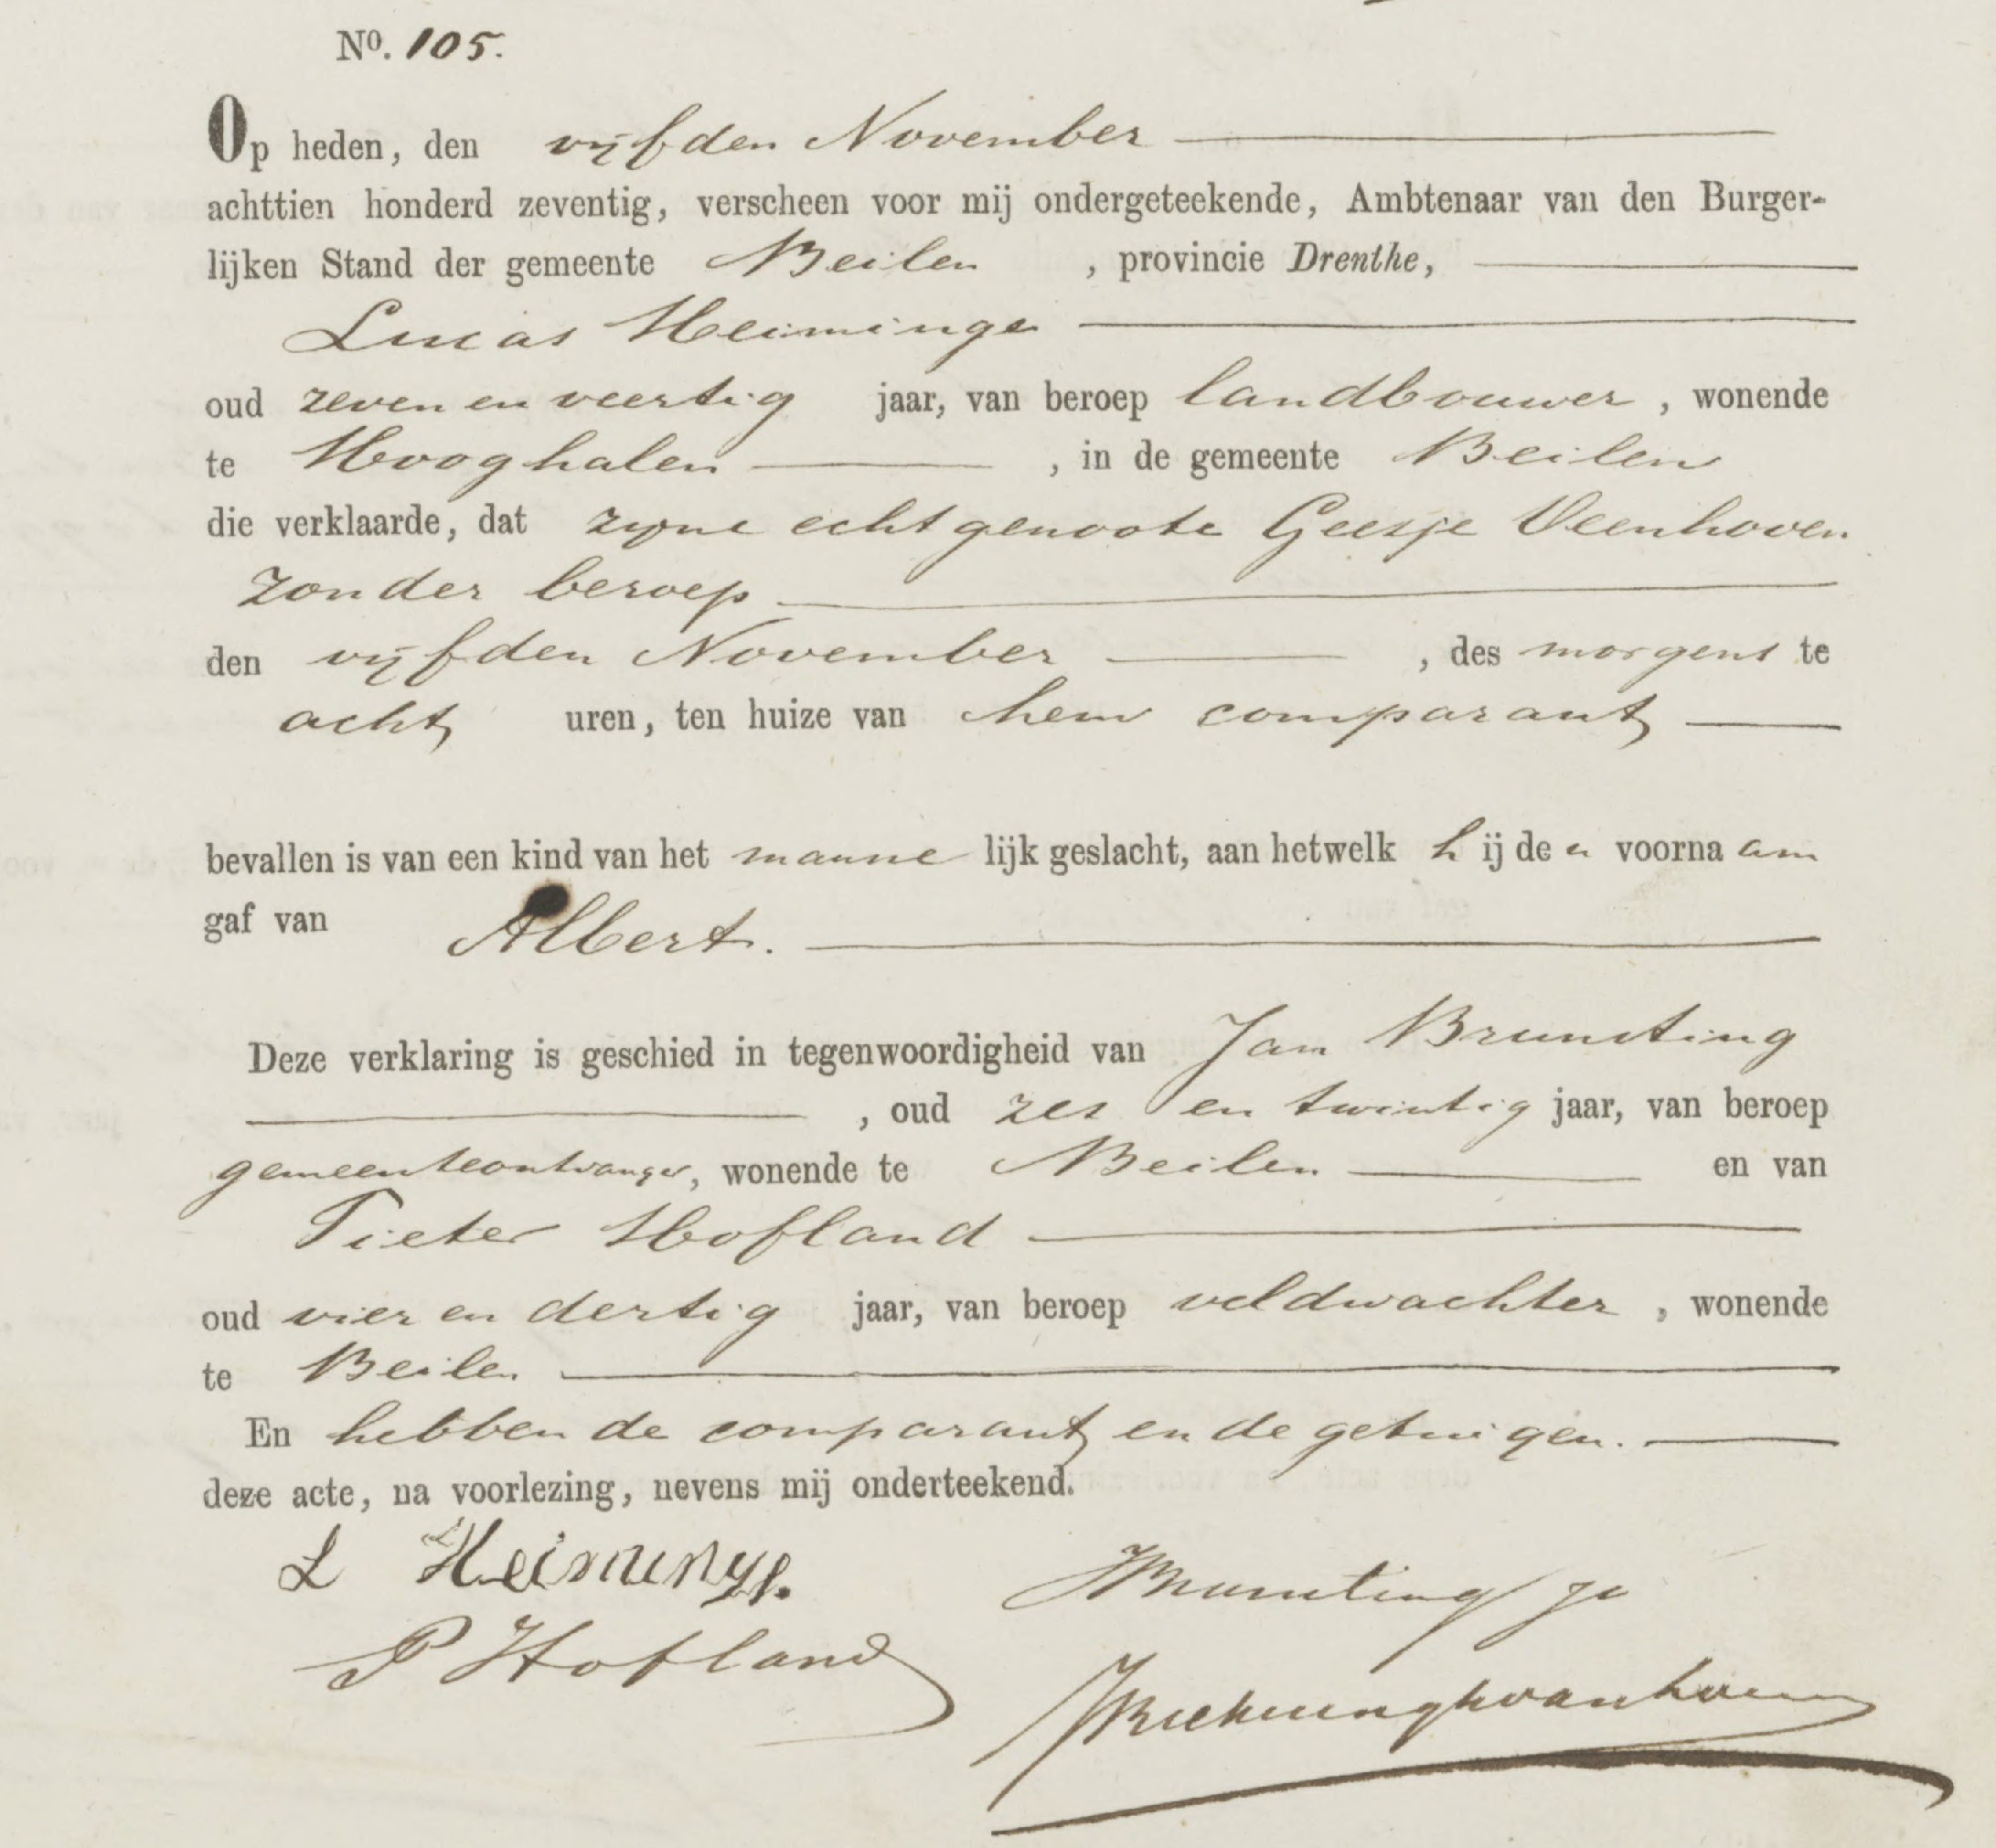 No. 105.
Op heden, den vijfden November
achttien honderd zeventig, verscheen voor mij ondergeteekende, Ambtenaar van den Burger-
lijken Stand der gemeente Beilen , provincie Drenthe,
Lucas Heiminge
oud zeven en veertig jaar, van beroep landbouwer , wonende
te Hooghalen , in de gemeente Beilen
die verklaarde, dat zijne echtgenoote Geesje Veenhoven
zonder beroep
den vijfden November , des morgens te
acht uren, ten huize van hem comparant
bevallen is van een kind van het manne lijk geslacht, aan hetwelk h ij de n voorna am
gaf van Albert.
Deze verklaring is geschied in tegenwoordigheid van Jan Brunsting
, oud zes en twintig jaar, van beroep
gemeenteontvanger, wonende te Beilen en van
Pieter Hofland
oud vier en dertig jaar, van beroep veldwachter , wonende
te Beilen
En hebben de comparant en de getuigen.
deze acte, na voorlezing, nevens mij onderteekend.
L Heiminge. JBrunting Jr
P Hofland